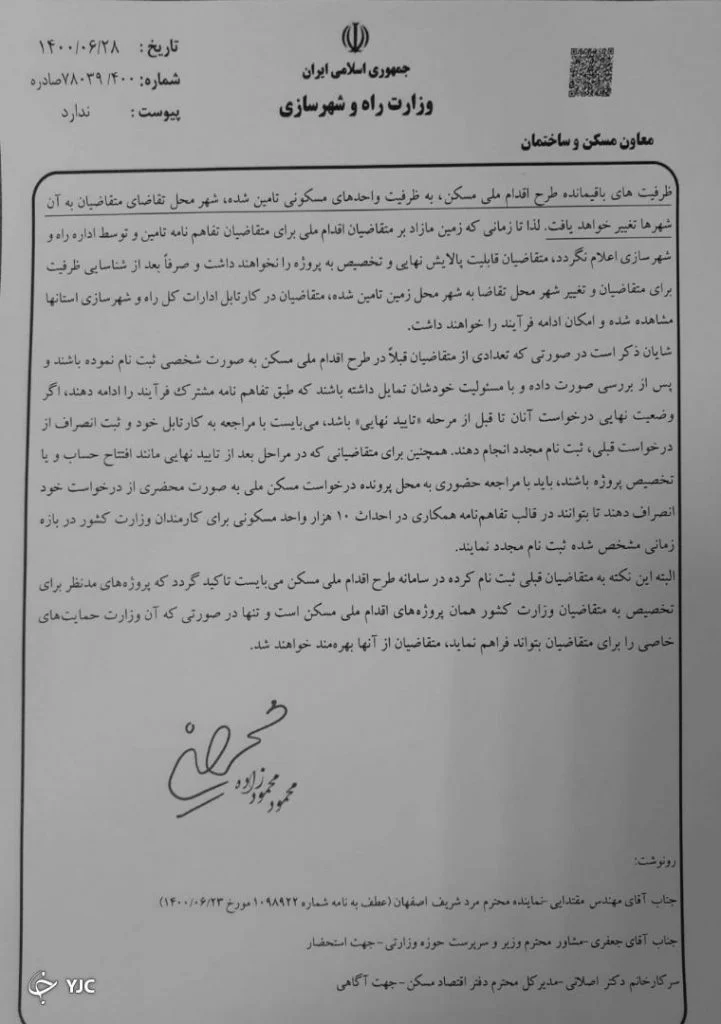 جمهوری اسلامی ایران
وزارت راه و شهرسازی
معاون مسکن و ساختمان
تاریخ : ۱۴۰۰/۰۶/۲۸
شماره: ۷۸۰۳۹/۴۰۰صادره
پیوست : ندارد
ظرفیت های باقیمانده طرح اقدام ملی مسکن، به ظرفیت واحدهای مسکونی تامین شده، شهر محل تقاضای متقاضیان به آن
شهرها تغییر خواهد یافت. لذا تا زمانی که زمین مازاد بر متقاضیان اقدام ملی برای متقاضیان تفاهم نامه تامین و توسط اداره راه و
شهرسازی اعلام نگردد، متقاضیان قابلیت پالایش نهایی و تخصیص به پروژه را نخواهند داشت و صرفاً بعد از شناسایی ظرفیت
برای متقاضیان و تغییر شهر محل تقاضا به شهر محل زمین تامین شده، متقاضیان در کارتابل ادارات کل راه و شهرسازی استانها
مشاهده شده و امکان ادامه فرآیند را خواهند داشت.
شایان ذکر است در صورتی که تعدادی از متقاضیان قبلاً در طرح اقدام ملی مسکن به صورت شخصی ثبت نام نموده باشند و
پس از بررسی صورت داده و با مسئولیت خودشان تمایل داشته باشند که طبق تفاهم نامه مشترک فرآیند را ادامه دهند، اگر
وضعیت نهایی درخواست آنان تا قبل از مرحله «تایید نهایی» باشد، می‌بایست با مراجعه به کارتابل خود و ثبت انصراف از
درخواست قبلی، ثبت نام مجدد انجام دهند. همچنین برای متقاضیانی که در مراحل بعد از تایید نهایی مانند افتتاح حساب و یا
تخصیص پروژه باشند، باید با مراجعه حضوری به محل پرونده درخواست مسکن ملی به صورت محضری از درخواست خود
انصراف دهند تا بتوانند در قالب تفاهم‌نامه همکاری در احداث ۱۰ هزار واحد مسکونی برای کارمندان وزارت کشور در بازه
زمانی مشخص شده ثبت نام مجدد نمایند.
البته این نکته به متقاضیان قبلی ثبت نام کرده در سامانه طرح اقدام ملی مسکن می‌بایست تاکید گردد که پروژه‌های مدنظر برای
تخصیص به متقاضیان وزارت کشور همان پروژه‌های اقدام ملی مسکن است و تنها در صورتی که آن وزارت حمایت‌های
خاصی را برای متقاضیان بتواند فراهم نماید، متقاضیان از آنها بهره‌مند خواهند شد.
محمود محمودزاده
رونوشت:
جناب آقای مهندس مقتدایی-نماینده محترم مرد شریف اصفهان (عطف به نامه شماره ۱۰۹۸۹۲۲ مورخ ۱۴۰۰/۰۶/۲۳)
جناب آقای جعفری-مشاور محترم وزیر و سرپرست حوزه وزارتی-جهت استحضار
سرکارخانم دکتر اصلانی-مدیرکل محترم دفتر اقتصاد مسکن-جهت آگاهی
YJC